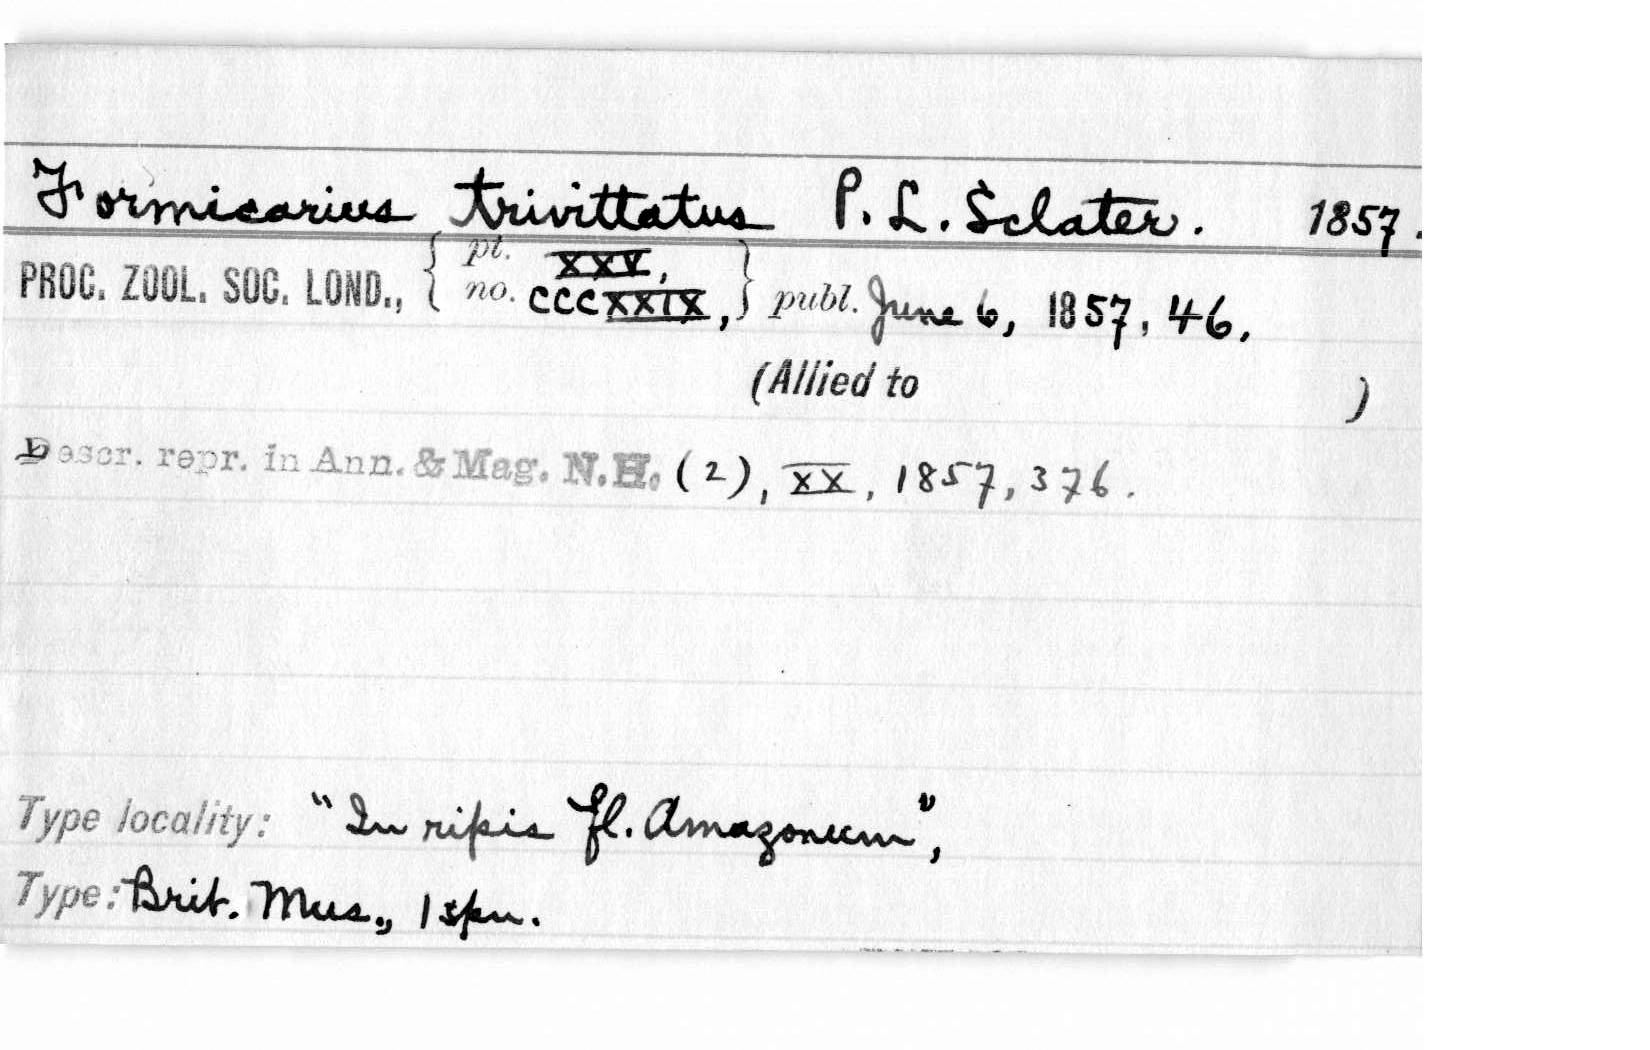 Formicarius trivittatus P. L. Sclater. 1857.
PROC. ZOOL. SOC. LOND., { pt. XXV, no. CCCXXIX, } publ. June 6, 1857, 46.
(Allied to )
Descr. repr. in Ann. & Mag. N.H. (2), XX, 1857, 376.
Type locality: "In ripis fl. Amazonum",
Type: Brit. Mus., 1 spn.